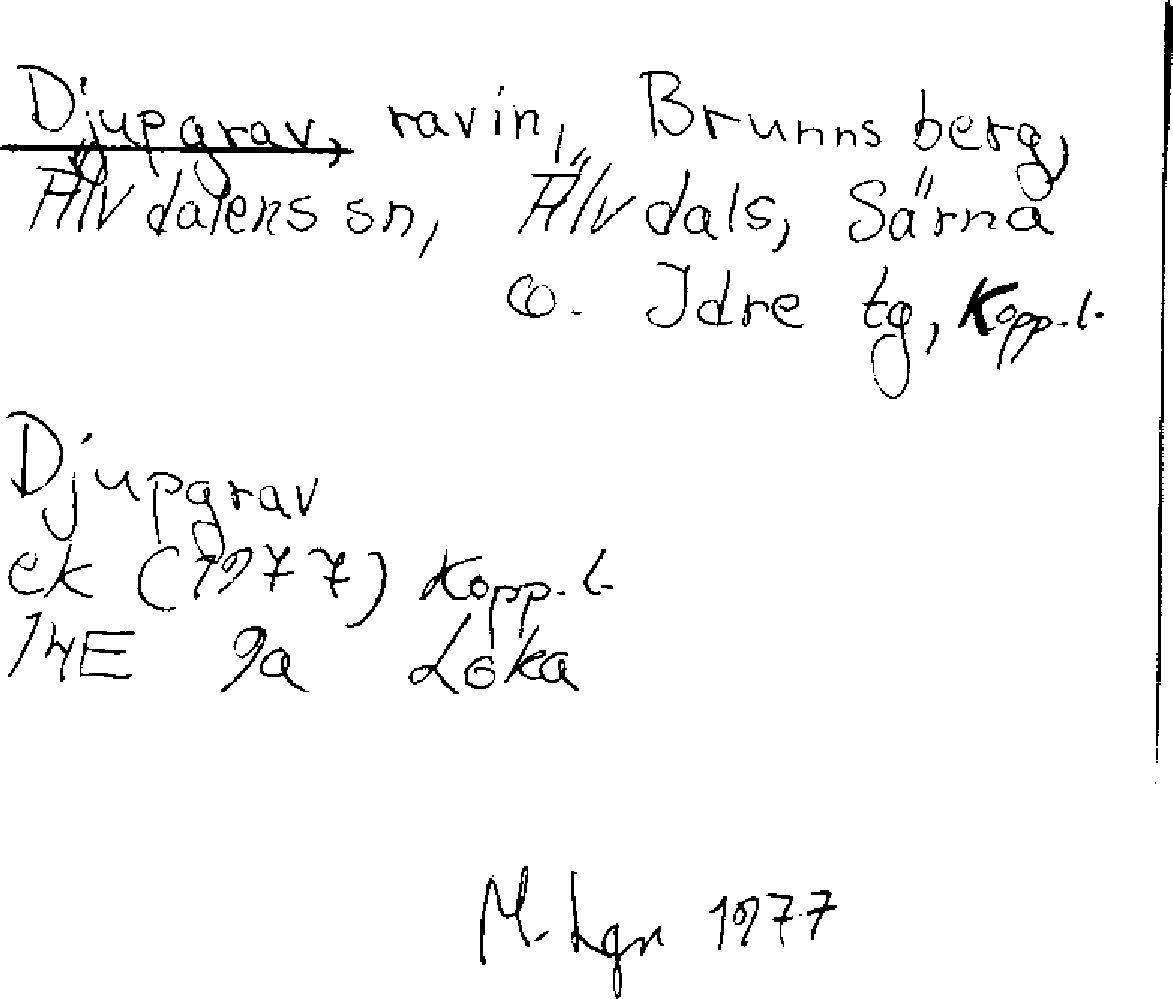 Djupgrav, ravin, Brunnsberg,
Älvdalens sn, Älvdals, Särna
o. Idre tg, Kopp. l.
Djupgrav
ek (1977) Kopp. l.
14E 9a Löka
M. Lgn 1977